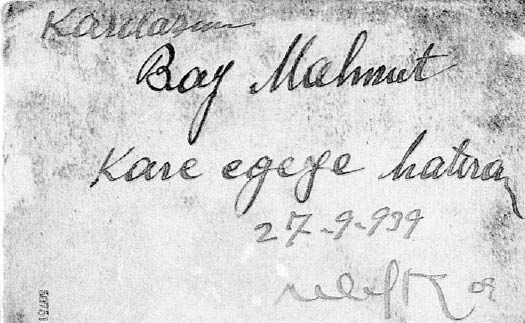 Kardaşım
Bay Mahmut
Kare egeye hatıra
27-9-939